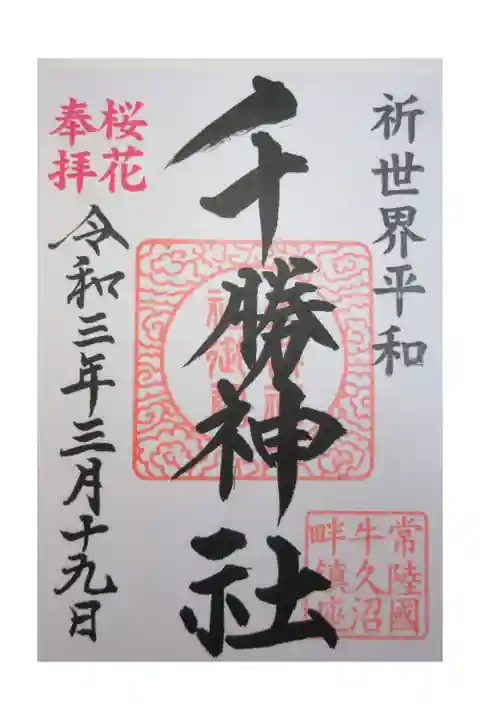 祈世界平和
千勝神社
桜花
奉拝
令和三年三月十九日
常陸國
牛久沼
畔鎮座